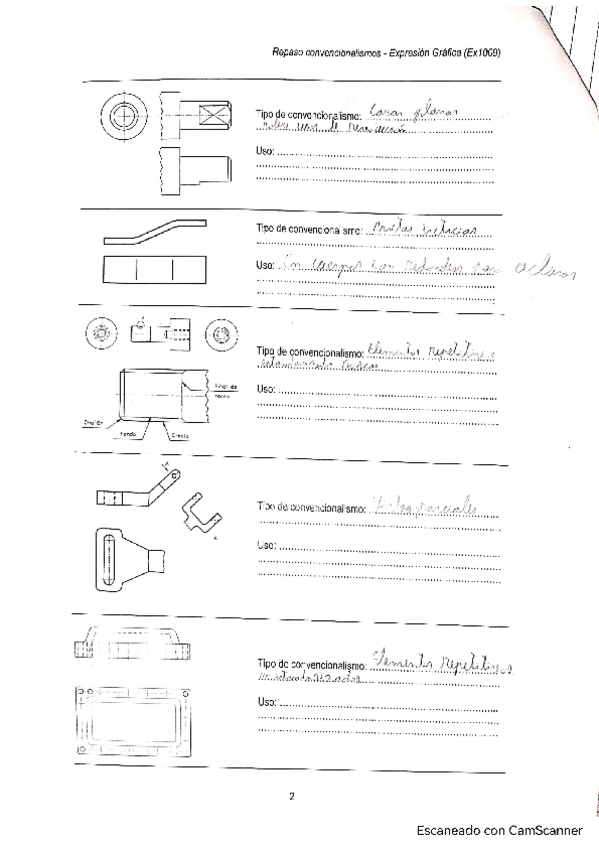 Repaso convencionalismos - Expresión Gráfica (Ex1009)
Tipo de convencionalismo: Caras planas
de
Uso:
Tipo de convencionalismo: Aristas ficticias
Uso: En cuerpos con redondeos para aclarar
Tipo de convencionalismo: Elementos repetitivos
Uso:
Final de rosca
Chaflán
Fondo
Cresta
Tipo de convencionalismo: Vistas parciales
Uso:
Tipo de convencionalismo: Elementos Repetitivos
Uso:
2
Escaneado con CamScanner